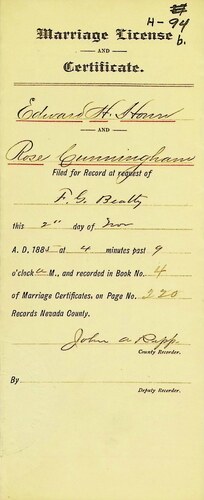 H-94
b.
Marriage License
AND
Certificate.
Edward H.
AND
Rose Cunningham
Filed for Record at request of
F. G. Beatty
this 2" day of Nov
A. D. 1885 at 4 minutes past 9
o'clock a M., and recorded in Book No. 4
of Marriage Certificates, on Page No. 220
Records Nevada County.
John A Rapp
County Recorder.
By
Deputy Recorder.